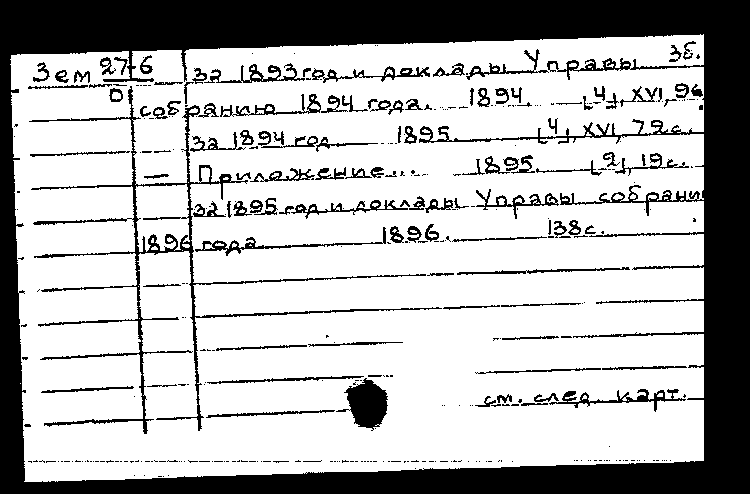 Зем 27-6 за 1893 год и доклады Управы 3б.
0 собранию 1894 года. 1894. [4], XVI, 96
за 1894 год 1895. [4], XVI, 72 с.
— Приложение... 1895. [2], 19 с.
за 1895 год и доклады Управы собрани
1896 года 1896. 138 с.
см. след. карт.